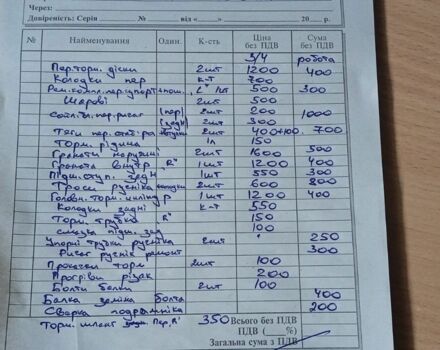 Через:
Довіреність: Серія № від « » 20 р.
№ Найменування Один. К-сть Ціна без ПДВ Сума без ПДВ
З/Ч робота
Пер. торм. діски 2шт 1200 400
Колодки пер к-т 700
Рем. компл. пер. 1шт 500 300
Шарові 2шт 500
Сайл. бл. пер. ричаг (пер) 2шт 200 1000
(задн) 2шт 300
Тяги пер. стаб. 2шт 400+100 700
Торм. рідина 1л 150
Гранати наружні 2шт 1600 500
Граната внутр. R" 1шт 1200 400
Підш. ступ. задн 1шт 550 300
Троси ручніка 2шт 600 800
Головн. торм. циліндр 1шт 1200 400
Колодки задні к-т 550
Торм. трубка R" 150
смазка підш. зад 100
Упорні трубки ручніка 2шт 250
Ричаг ручнік ремонт 300
Прокачки торм 2шт 100
Прогрівы різак 200
Болти балки 2шт 100
Балка заміна болта 400
Сварка подрамніка 200
Торм. шланг Пер. R" 350
Всього без ПДВ
ПДВ ( %)
Загальна сума з ПДВ